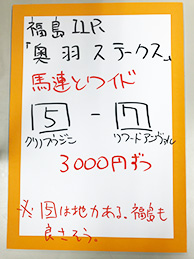 福島11R
「奥羽ステークス」
馬連とワイド
5 - 7
クリノフウジン リワードアンヴァル
3000円ずつ
※ 5は地力ある、福島も
良さそう。